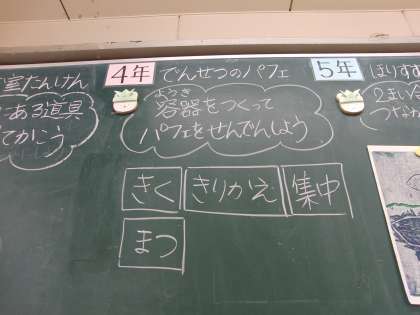 室たんけん
ある道具
てかこう
4年
でんせつのパフェ
ようき
容器をつくって
パフェをせんでんしよう
きく
きりかえ
集中
まつ
5年
ほりすす
2まい
つなが